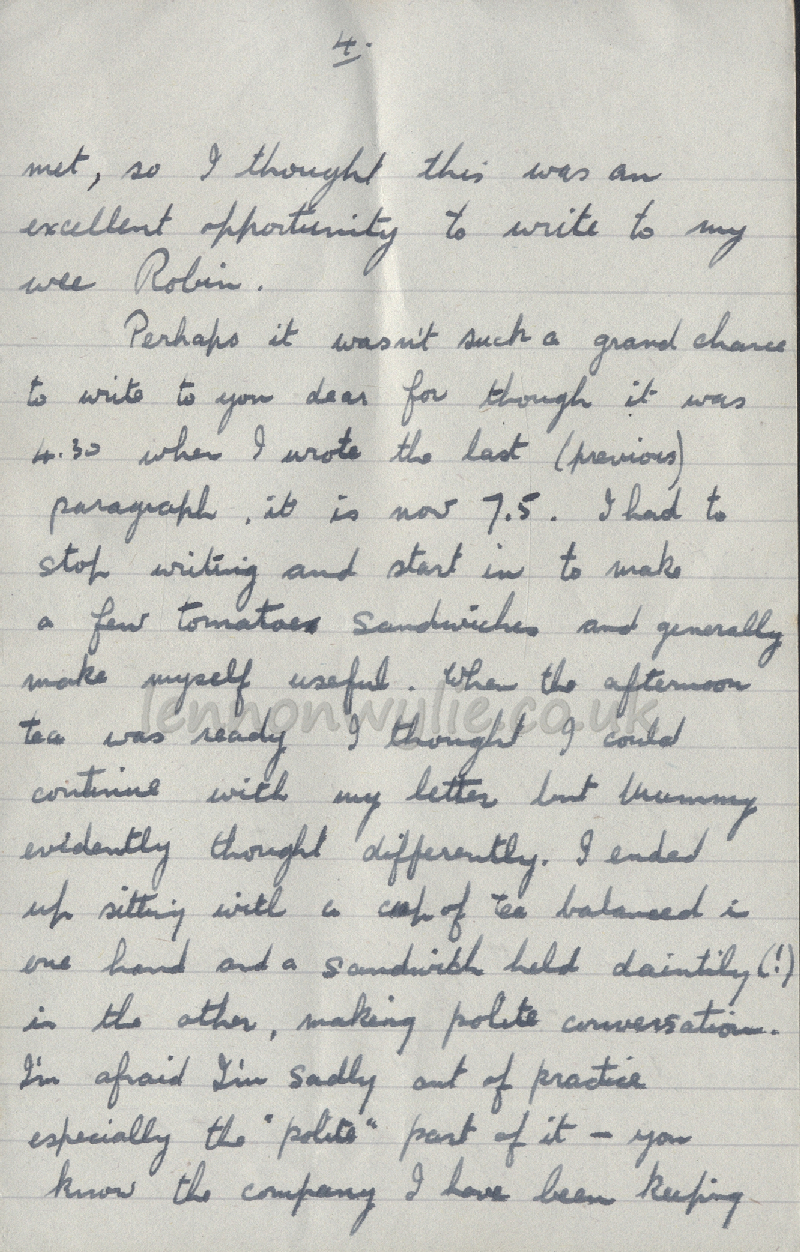 4.
met, so I thought this was an
excellent opportunity to write to my
wee Robin.
Perhaps it wasn't such a grand chance
to write to you dear for though it was
4.30 when I wrote the last (previous)
paragraph, it is now 7.5. I had to
stop writing and start in to make
a few tomatoes sandwiches and generally
make myself useful. When the afternoon
lennonwylie.co.uk
tea was ready I thought I could
continue with my letter but Mummy
evidently thought differently. I ended
up sitting with a cup of tea balanced in
one hand and a sandwich held daintily (!)
in the other, making polite conversation.
I'm afraid I'm sadly out of practice
especially the "polite" part of it – you
know the company I have been keeping